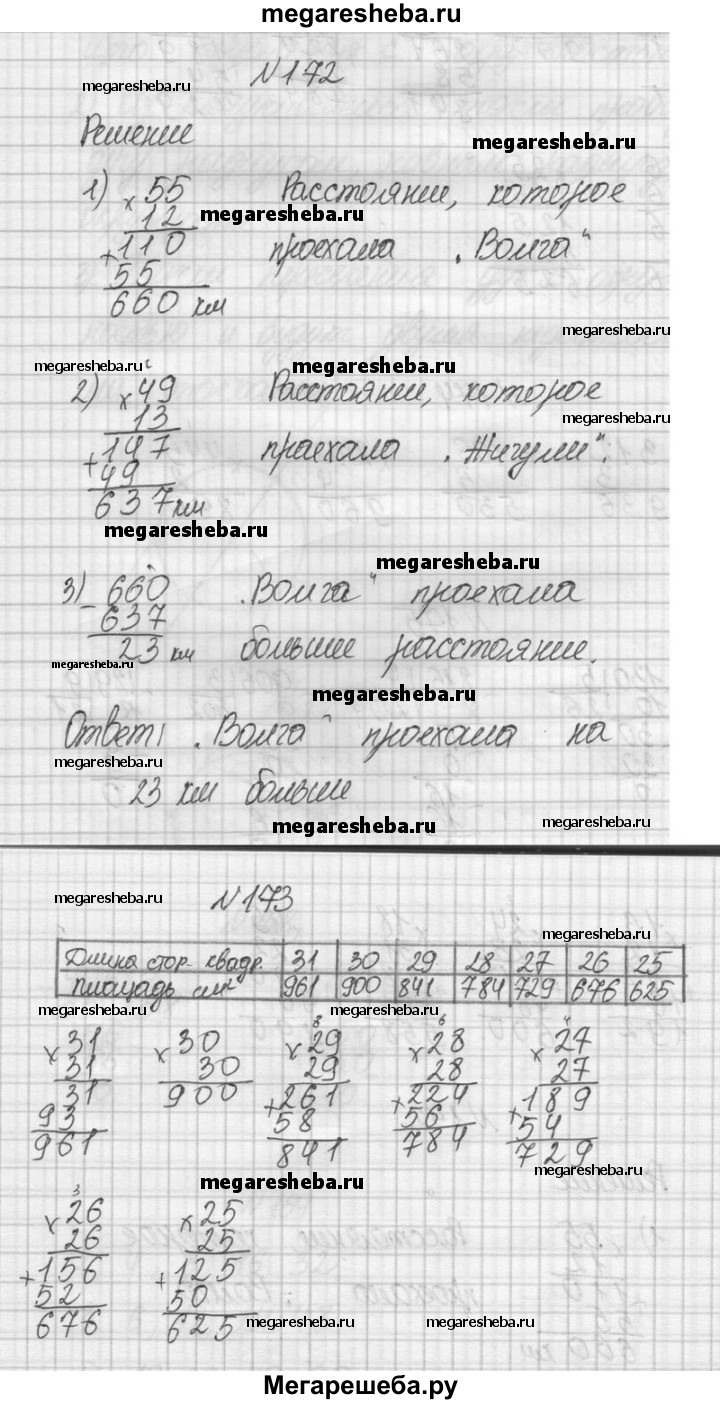 megaresheba.ru
N172
megaresheba.ru
Решение
megaresheba.ru
1) x 55 Расстояние, которое
12 megaresheba.ru
+110 проехала „Волга“
55
660 км
megaresheba.ru
megaresheba.ru
megaresheba.ru
2) x 49 Расстояние, которое
13 megaresheba.ru
+147 проехала „Жигули“.
49
637 км
megaresheba.ru
megaresheba.ru
3) 660 „Волга“ проехала
- 637
23 км больше расстояние.
megaresheba.ru
megaresheba.ru
Ответ: „Волга“ проехала на
megaresheba.ru
23 км больше
megaresheba.ru megaresheba.ru
N173
megaresheba.ru
megaresheba.ru
Длина стор. квадр. 31 30 29 28 27 26 25
площадь см² 961 900 841 784 729 676 625
megaresheba.ru megaresheba.ru megaresheba.ru
3 6 4
x 31 x 30 x 29 x 28 x 27
31 30 29 28 27
31 900 +261 +224 189
93 58 56 +54
961 841 784 729
megaresheba.ru
megaresheba.ru
3
x 26 x 25
26 25
+156 +125
52 50
676 625 megaresheba.ru megaresheba.ru
Мегарешеба.ру